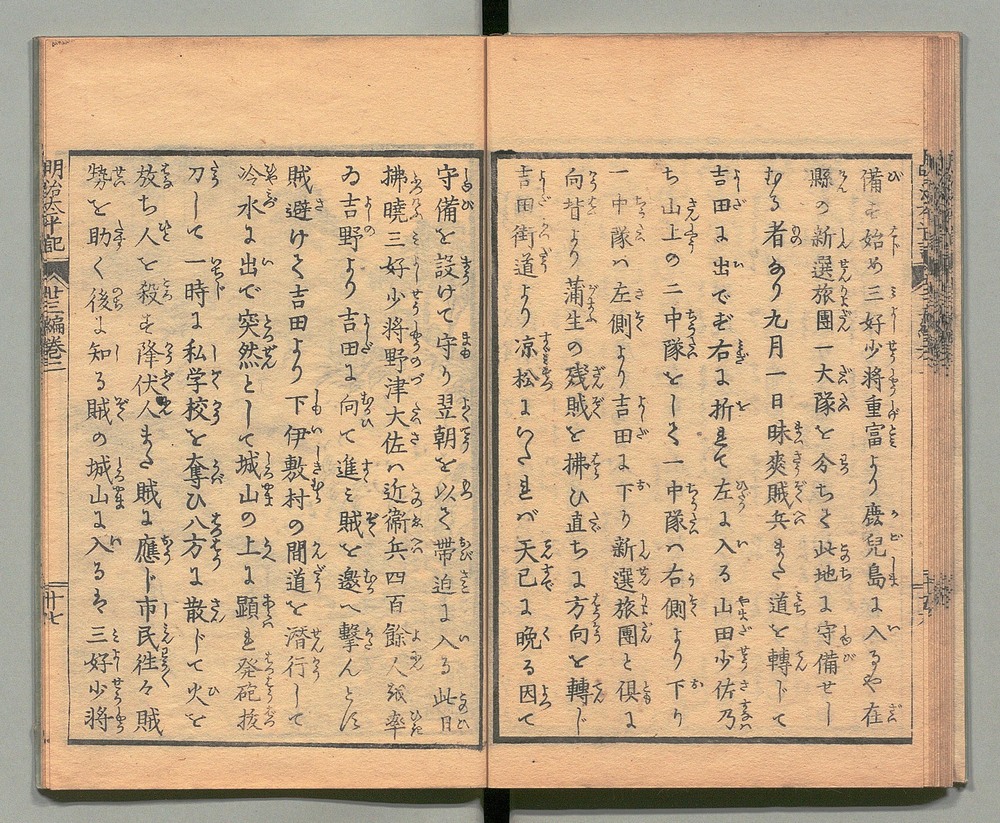 備を始め三好少将重富より鹿兒島に入るや在
縣の新選旅團一大隊を分ちて此地に守備せし
むる者あり九月一日昧爽賊兵また道を轉じて
吉田に出でず右に折れて左に入る山田少佐乃
ち山上の二中隊をして一中隊ハ右側より下り
一中隊ハ左側より吉田に下り新選旅團と倶に
向背より蒲生の残賊を拂ひ直ちに方向を轉じ
吉田街道より凉松にいたれバ天已に晩る因て
守備を設けて守り翌朝を以て帯迫に入る此日
拂曉三好少将野津大佐ハ近衞兵四百餘人を率
ゐ吉野より吉田に向て進み賊を邀へ撃んとす
賊避けて吉田より下伊敷村の間道を潜行して
冷水に出で突然として城山の上に顕れ発砲抜
刀して一時に私学校を奪ひ八方に散じて火を
放ち人を殺す降伏人また賊に應じ市民徃々賊
勢を助く後に知る賊の城山に入るを三好少将
明治太平記
廿三編巻二
十七